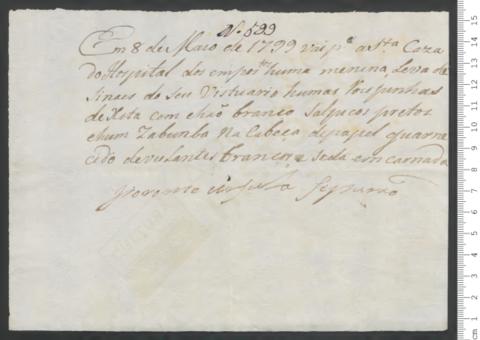 N. 599
Em 8 de Maio de 1799 vai p.ª a S.ta Caza
do Hospital dos empos.tos huma menina, Leva de
Sinaes do Seu Vistuario humas Roupunhas
de Xita com chão branco Salpicos pretos
e hum Zabumba na Cabeça de papel guarne
cido de volantes brancos, e Seda emcarnada
por nome Ursula